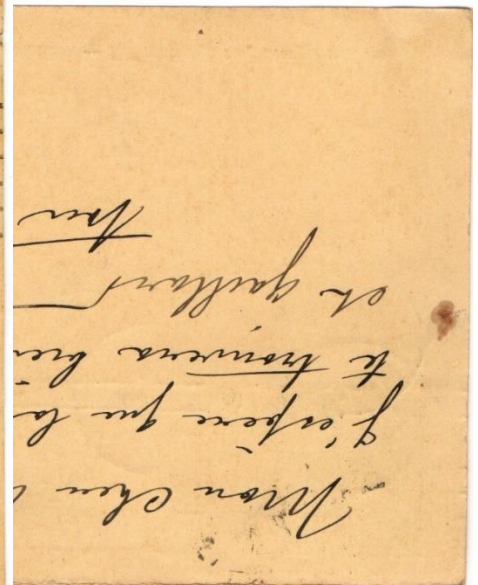 Mon Cher
J'espère que la
te trouvera bien
et gaillard